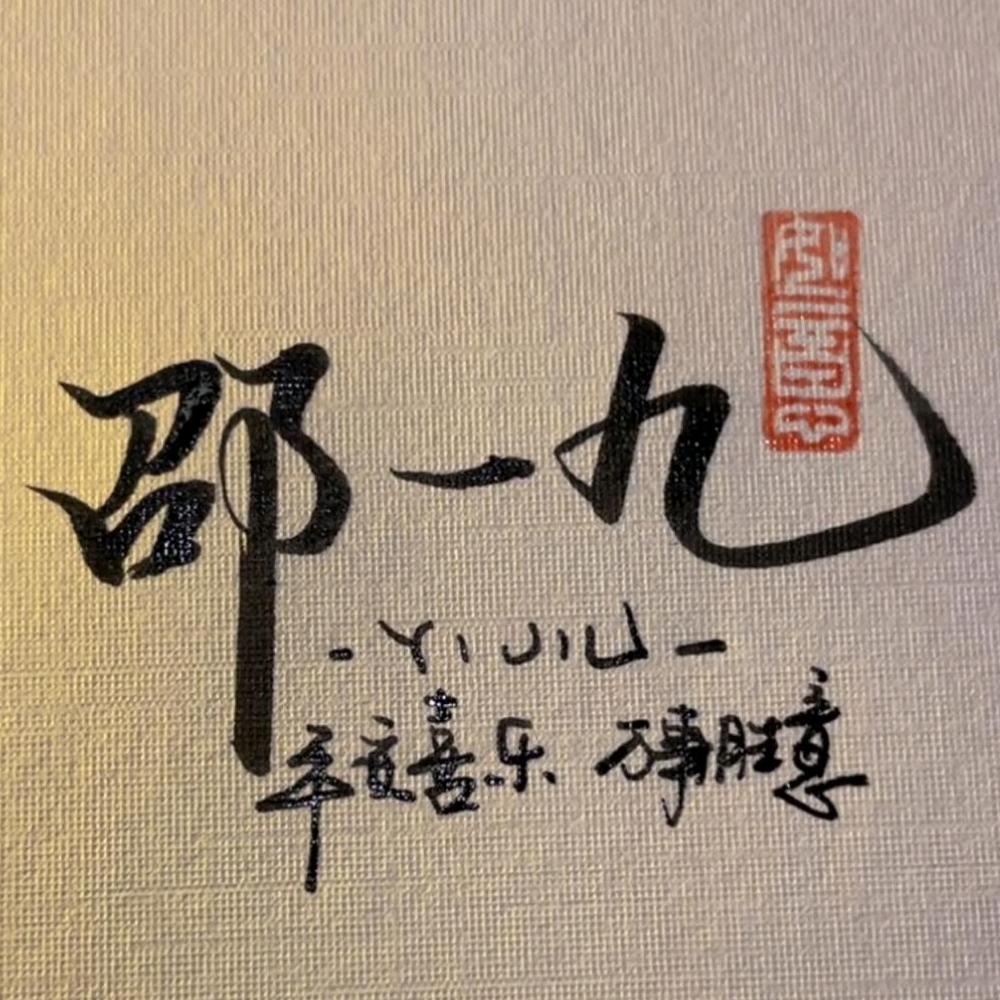 邵一九
- YIJIU -
平安喜乐 万事胜意